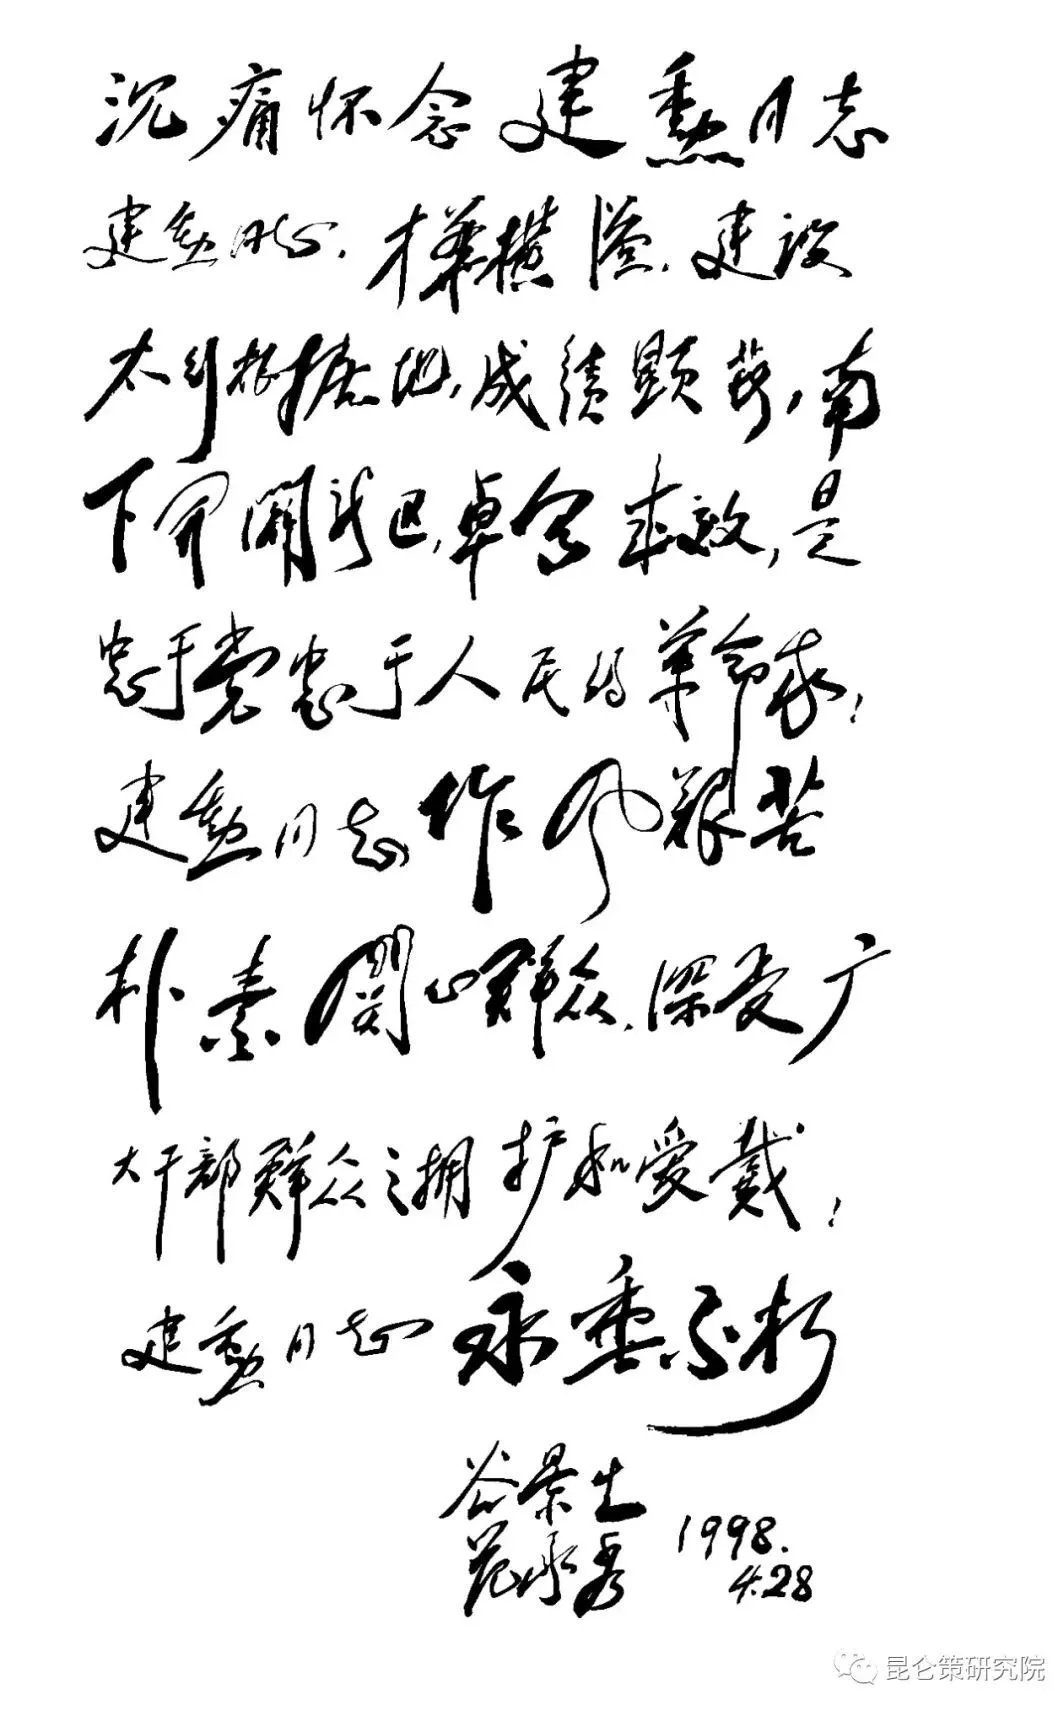 沉痛怀念建勳同志
建勳同志，才华横溢，建设
太行根据地，成绩显著，南
下开闢新区，卓有成效，是
忠于党忠于人民的革命家！
建勳同志作风艰苦
朴素关心群众，深受广
大干部群众之拥护和爱戴！
建勳同志永垂不朽
谷景生
范承秀 1998.
4.28
昆仑策研究院